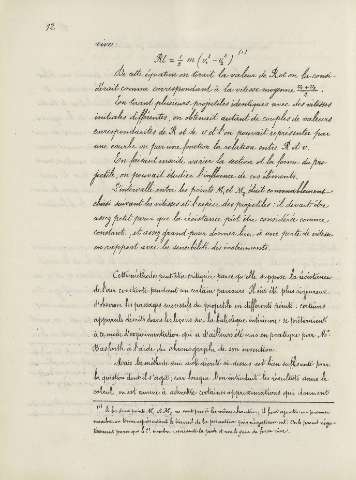 12
vives:
Rl = 1/2 m (v₁² - v₂²) (1)
De cette équation on tirait la valeur de R et on la consi-
dérait comme correspondant à la vitesse moyenne (v₁ + v₂)/2.
En tirant plusieurs projectiles identiques avec des vitesses
initiales différentes, on obtenait autant de couples de valeurs
correspondantes de R et de v et l'on pouvait représenter par
une courbe ou par une fonction la relation entre R et v.
En faisant ensuite varier la section et la forme du pro-
jectile, on pouvait étudier l'influence de ces éléments.
L'intervalle entre les points M₁ et M₂ était convenablement
choisi suivant les vitesses et l'espèce des projectiles: il devait être
assez petit pour que la résistance pût être considérée comme
constante, et assez grand pour donner lieu à une perte de vitesse
en rapport avec la sensibilité des instruments.
Cette méthode peut être critiquée parce qu'elle suppose la résistance
de l'air constante pendant un certain parcours. Il eût été plus rigoureux
d'observer les passages successifs du projectile en différents points; certains
appareils décrits dans les leçons sur la balistique intérieure se prêteraient
à ce mode d'expérimentation qui a d'ailleurs été mis en pratique par Mr
Bashforth à l'aide du chronographe de son invention.
Mais la méthode qui a été décrite ci-dessus est bien suffisante pour
la question dont il s'agit; car lorsque l'on introduit les résultats dans le
calcul, on est amené à admettre certaines approximations qui donnent
(1) Si les deux points M₁ et M₂ ne sont pas à la même hauteur, il faut ajouter au premier
membre un terme représentant le travail de la pesanteur